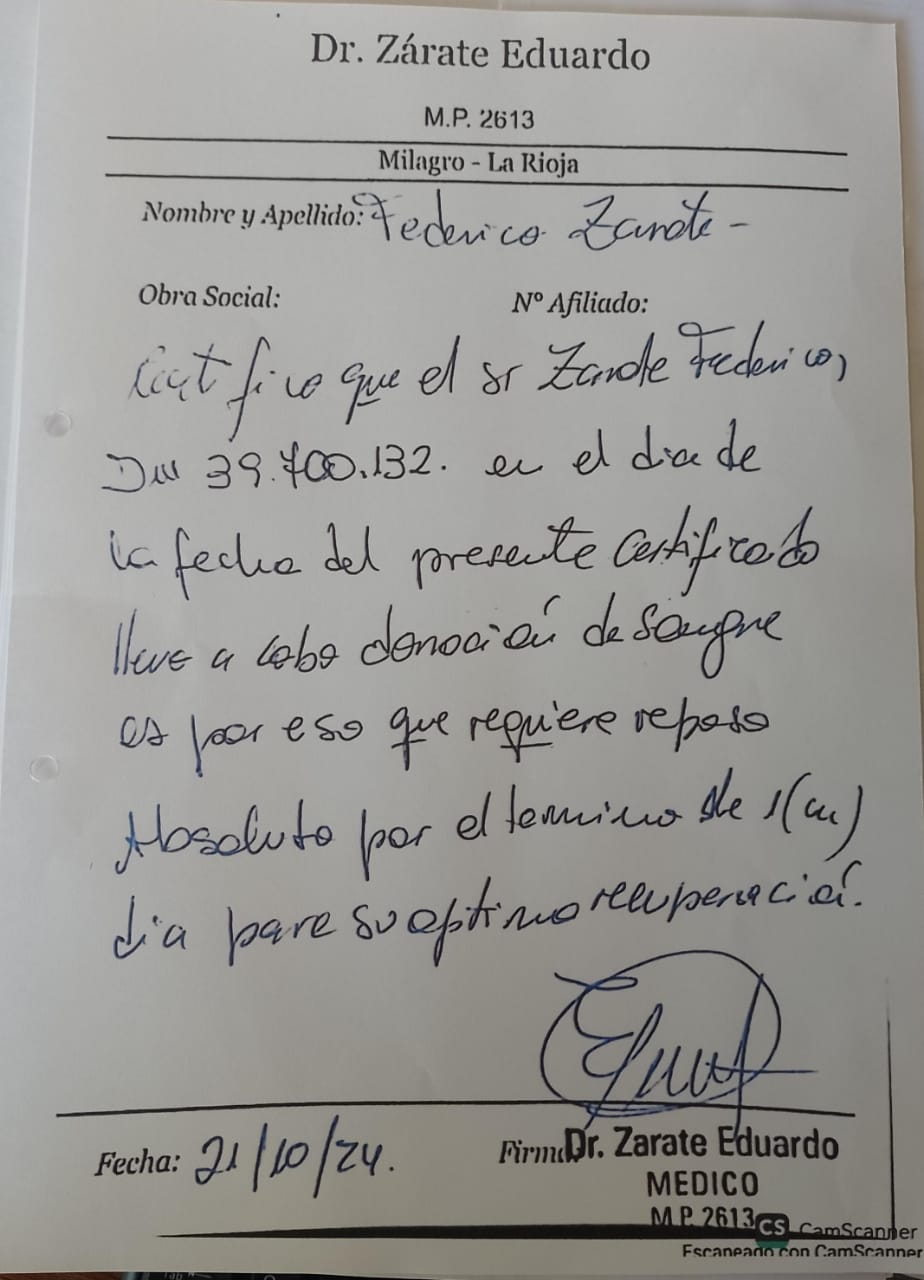 Dr. Zárate Eduardo
M.P. 2613
Milagro - La Rioja
Nombre y Apellido: Federico Zarate -
Obra Social: Nº Afiliado:
Certifico que el sr Zarate Federico,
DNI 39.700.132. en el dia de
la fecha del presente certificado
lleve a cabo donación de sangre
es por eso que requiere reposo
Absoluto por el termino de 1(un)
dia para su optimo recuperación.
Fecha: 21/10/24.
Firma Dr. Zarate Eduardo
MEDICO
M.P. 2613
CS CamScanner
Escaneado con CamScanner